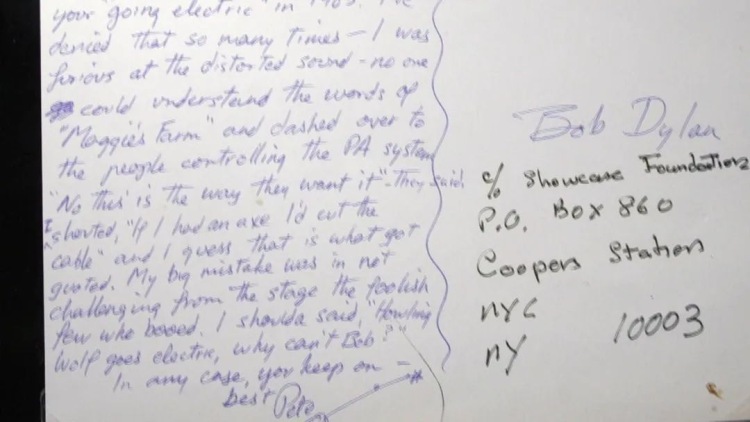 your "going electric" in 1965. I've
denied that so many times — I was
furious at the distorted sound - no one
could understand the words of
"Maggie's Farm" and dashed over to
the people controlling the PA system
"No this is the way they want it" - They said.
I shouted, "If I had an axe I'd cut the
cable" and I guess that is what got
quoted. My big mistake was in not
challenging from the stage the foolish
few who booed. I shoulda said, "Howling
Wolf goes electric, why can't Bob?"
In any case, you keep on —
best Pete
Bob Dylan
c/o Showcase Foundation
P.O. Box 860
Coopers Station
NYC
NY 10003